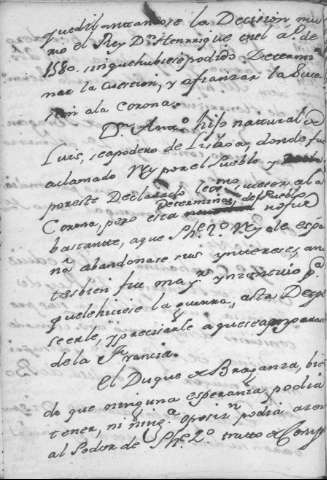 quedibantandose la Decision mu
rio el Rey Dn. Henrrique en el a.º de
1580. sin que hubiese podido Determi
nar la cuestion, y afianzar la suce
sion ala Corona.
Dn. Anto. hijo natural de
Luis, se apodero de Lisboa, donde fue
aclamado Rey por el Pueblo y
por este Declarado ala
Corona, pero esta Determinaon. del Pueblo no fue
bastante, a que Phe. 2.º Rey de Espa
ña abandonase sus Yntereses, an
tes bien fue mayr.
que le hiciese la guerra, asta Desp
seerle, y precisarle a que se amparara
de la Francia.
El Duque de Braganza, bien
do que ninguna esperanza podia
tener, ni ninga. oposin. podia
al Poder de Phe. 2.º trato de